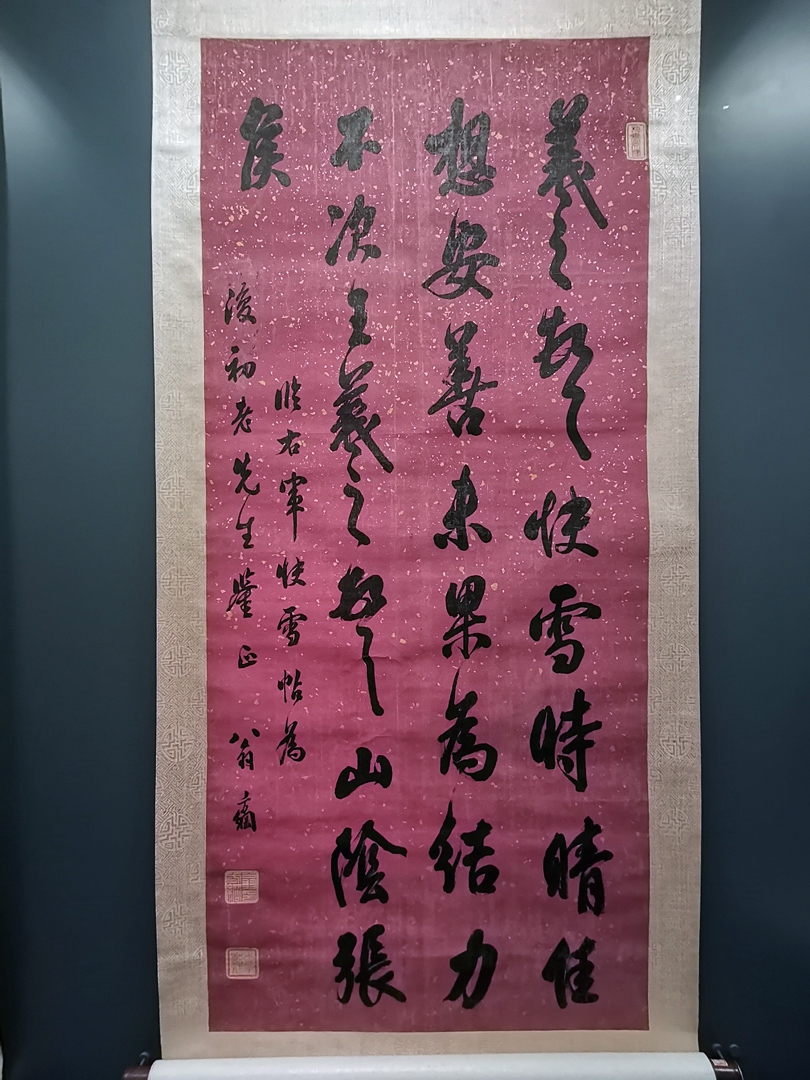 羲之頓首快雪時晴佳
想安善未果為結力
不次王羲之頓首山陰張
侯
臨右軍快雪帖為
復初老先生鑒正 翁